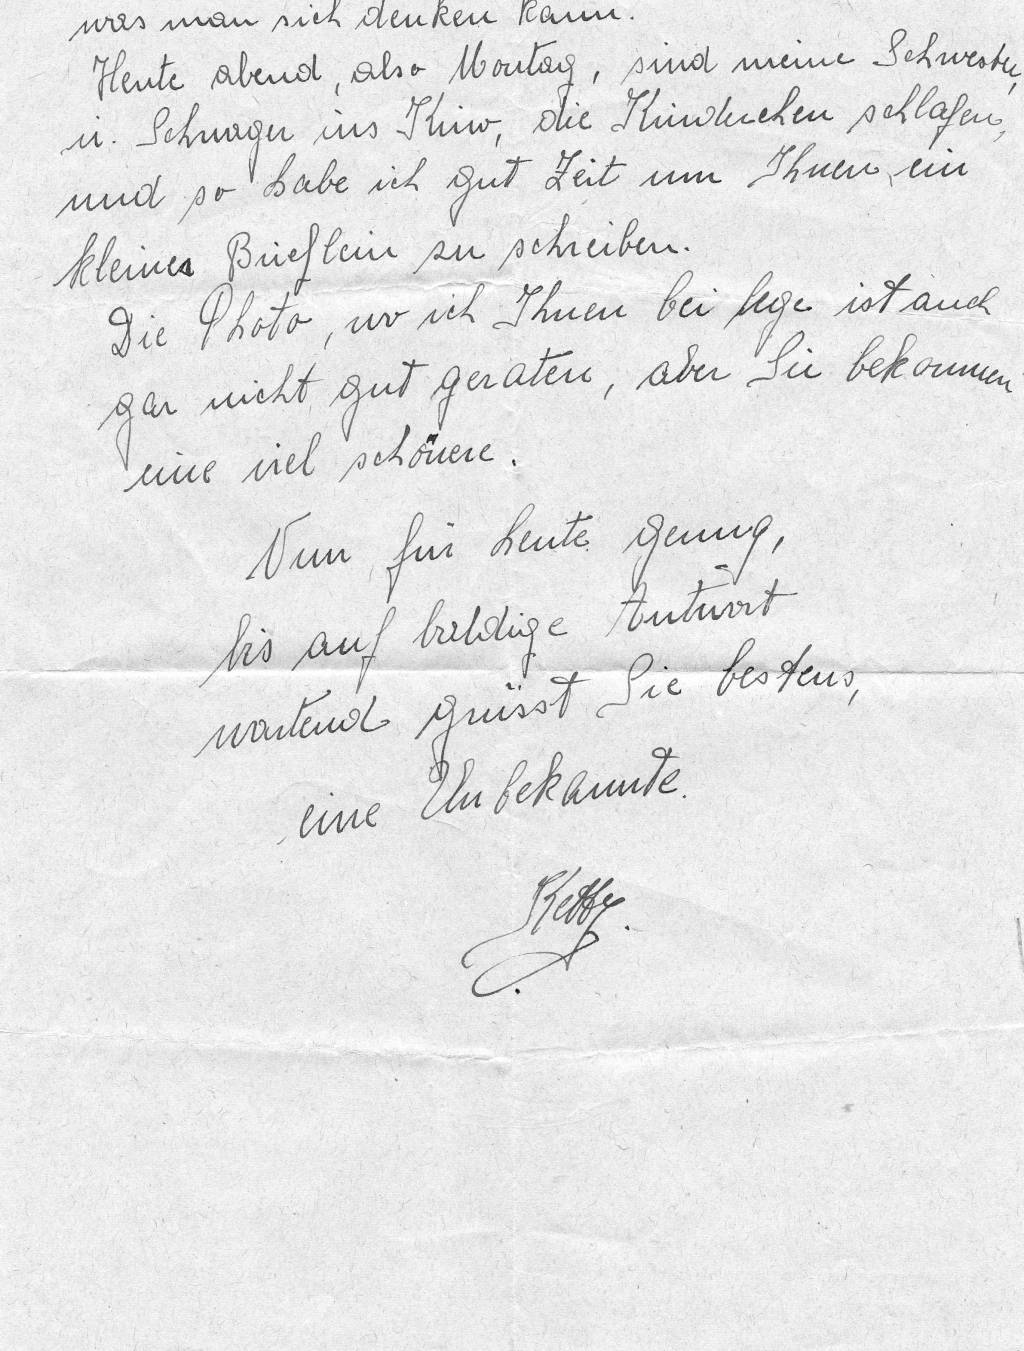 was man sich denken kann.
Heute abend, also Montag, sind meine Schwester,
u. Schwager ins Kino, die Kinderchen schlafen,
und so habe ich gut Zeit um Ihnen ein
kleines Brieflein zu schreiben.
Die Photo, wo ich Ihnen bei lege ist auch
gar nicht gut geraten, aber Sie bekommen
eine viel schönere.
Nun für heute genug,
bis auf baldige Antwort
wartend grüsst Sie bestens,
eine Unbekannte.
Ketty.